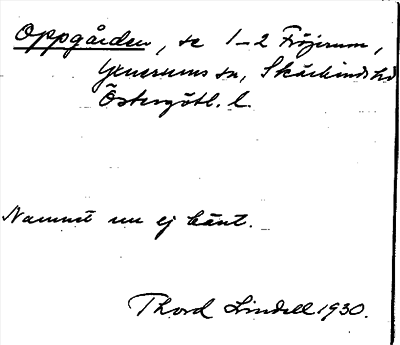 Oppgården, se 1-2 Fröjerum,
Yxnerums sn, Skärkinds hd
Östergötl. l.
Namnet nu ej känt.
Thord Lindell 1930.